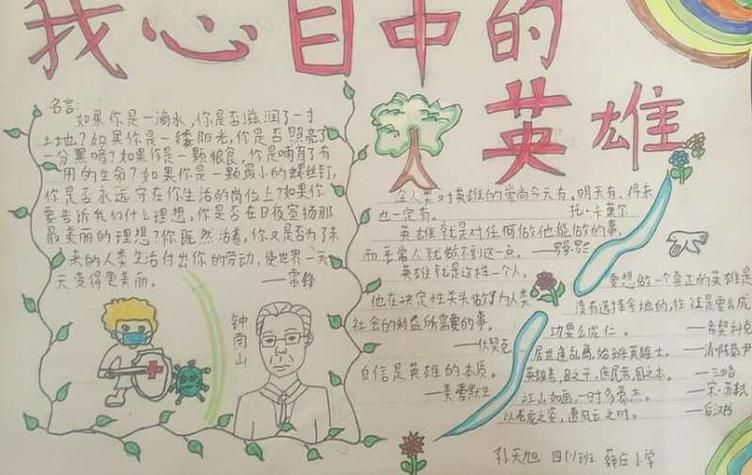 我心目中的
英雄
名言:
如果你是一滴水,你是否滋润了一寸
土地?如果你是一缕阳光,你是否照亮了
一分黑暗?如果你是一颗粮食,你是哺育了有
用的生命?如果你是一颗最小的螺丝钉,
你是否永远守在你生活的岗位上?如果你
要告诉我们什么理想,你是否在日夜宣扬那
最美丽的理想?你既然活着,你又是否为了未
来的人类生活付出你的劳动,使世界一天
天变得更美丽。
——雷锋
钟南山
全人类对英雄的崇尚今天有,明天有,将来
也一定有。 托·卡莱尔
英雄就是对任何做他能做的事,
而平常人就做不到这一点。——罗曼·罗兰
英雄就是这样一个人,
他在决定性关头做了为人类
社会的利益所需要的事。
——伏契克
自信是英雄的本质。
——美·爱默生
要想做一个真正的英雄是
没有选择余地的,往往是要么成
功要么虎仁。
江山如画,一时多豪杰。 ——宋·苏轼
孔天旭 四(1)班 薛庄小学